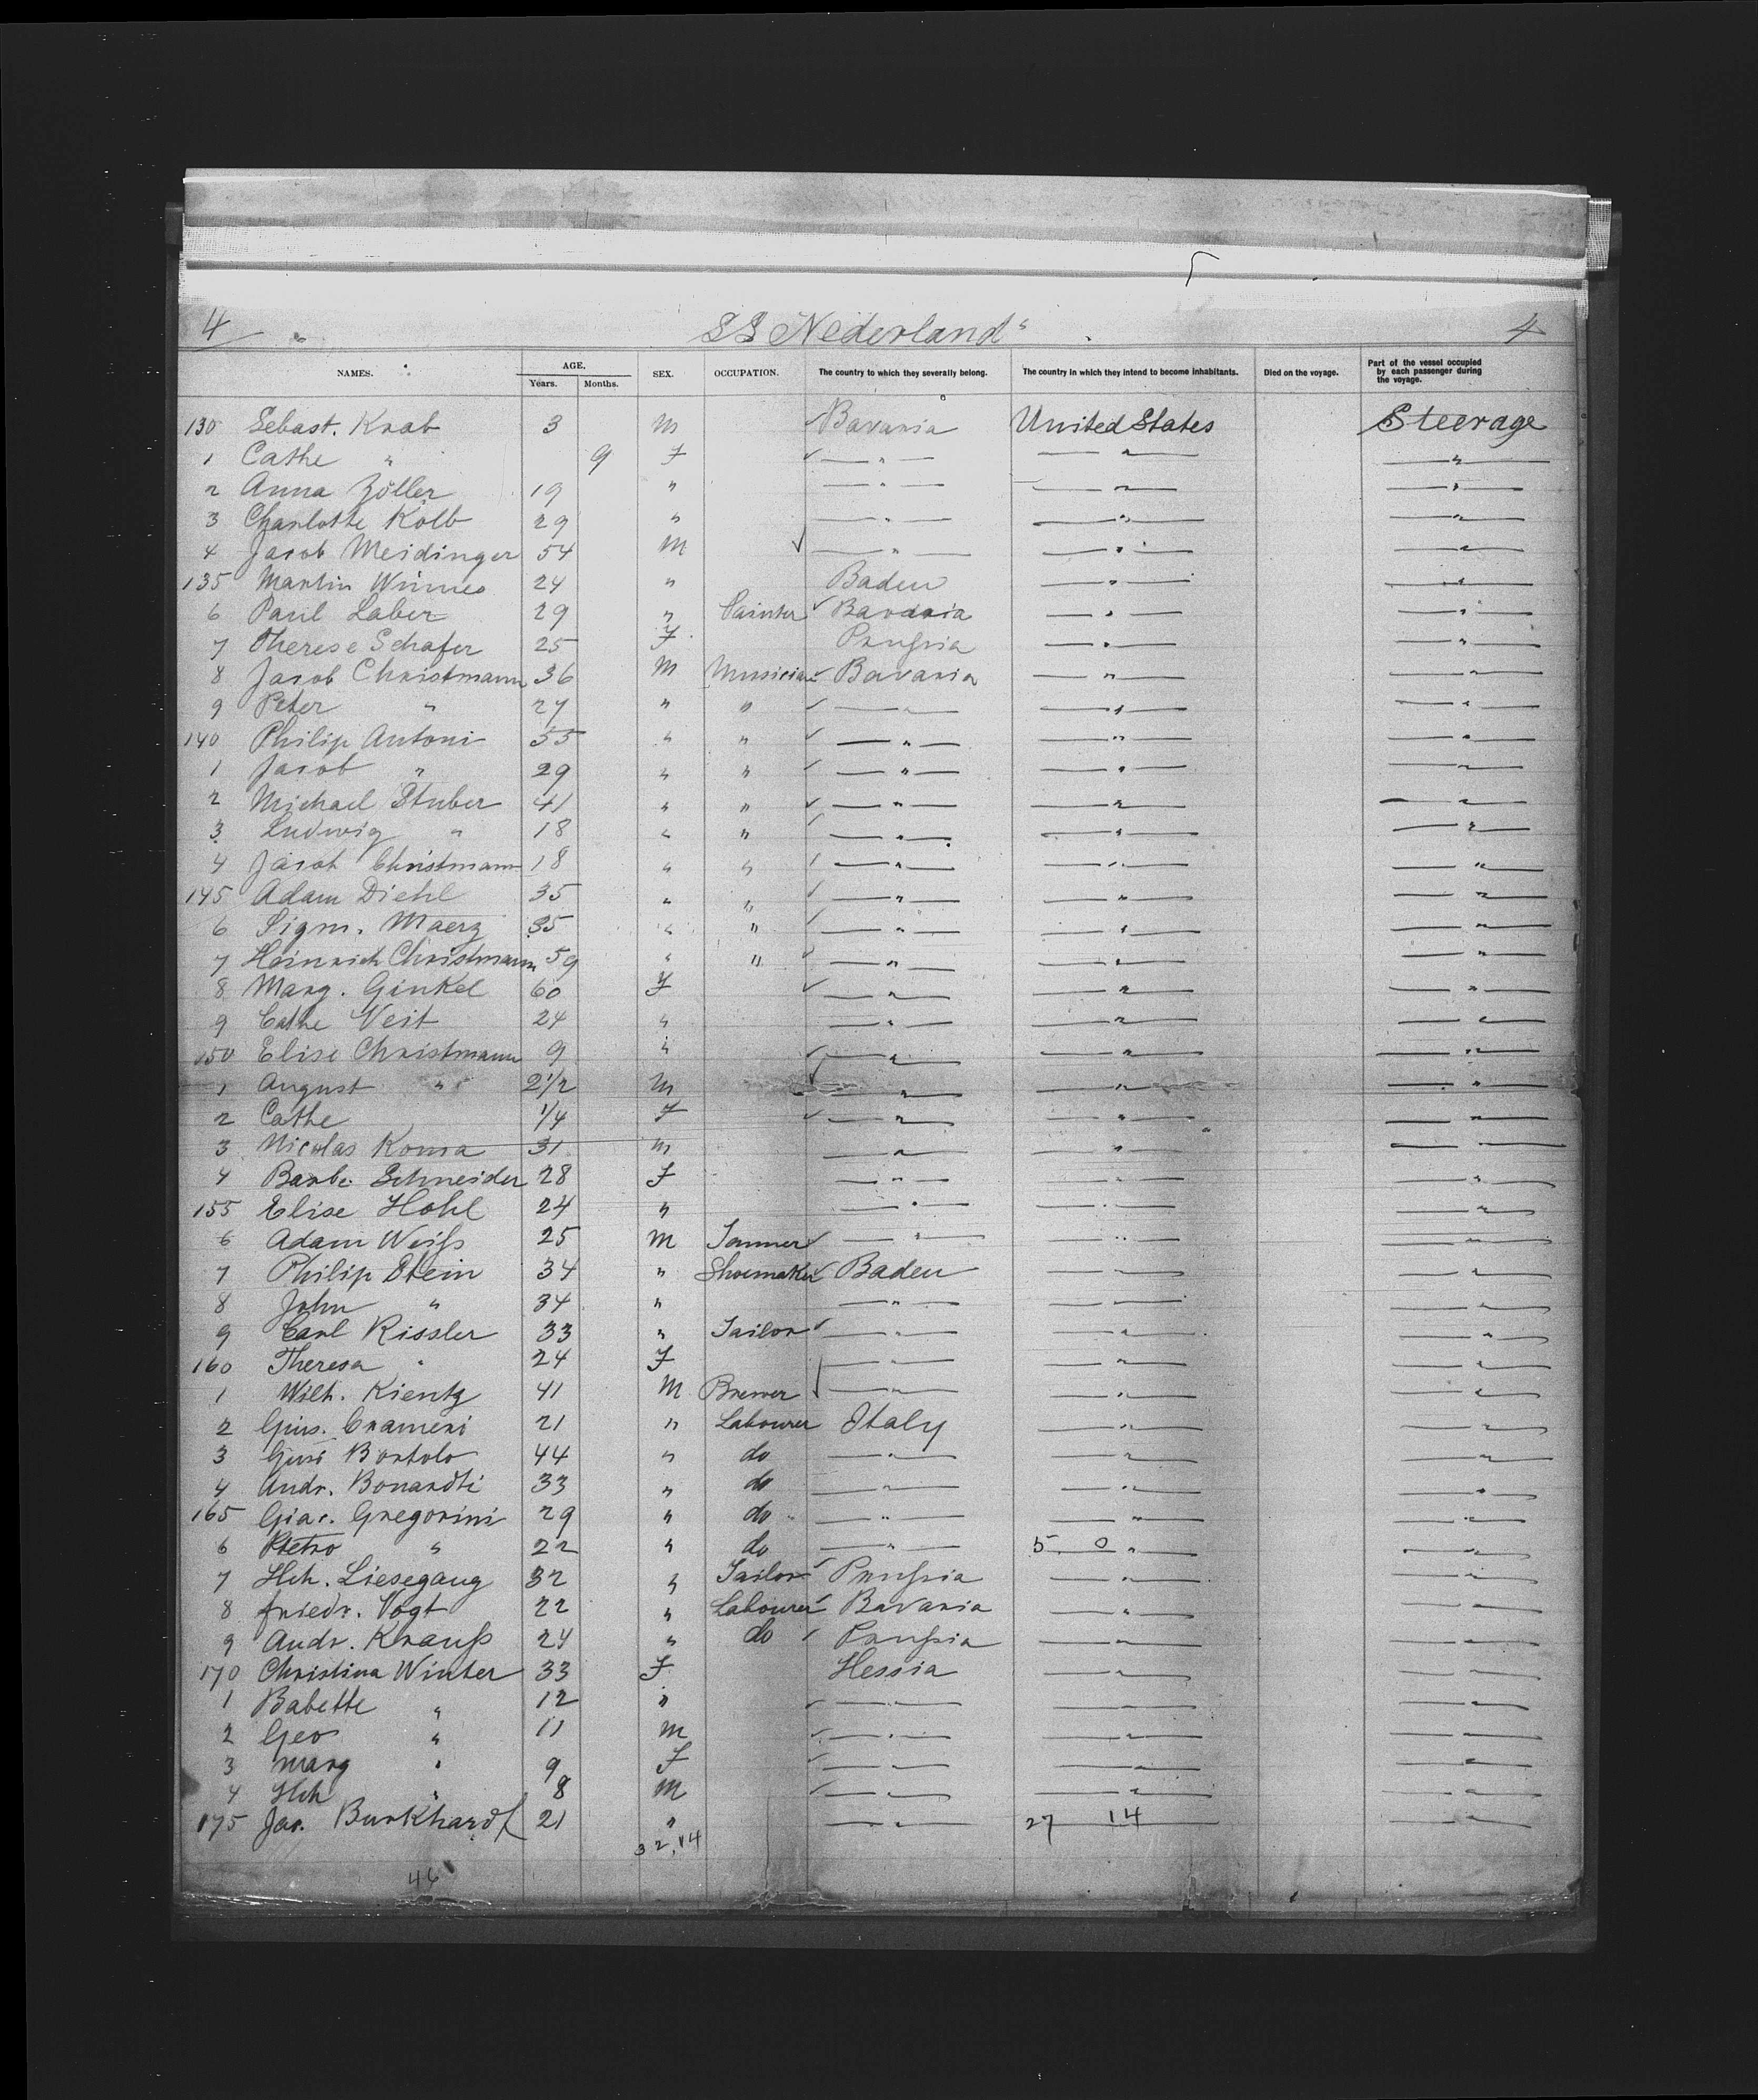 4 SS Nederland" 4
NAMES. AGE. Years. Months. SEX. OCCUPATION. The country to which they severally belong. The country in which they intend to become inhabitants. Died on the voyage. Part of the vessel occupied by each passenger during the voyage.
130 Sebast. Knab 3 M Bavaria United States Steerage
1 Cathe " 9 F " " "
2 Anna Zöller 19 " " " "
3 Charlotte Kolb 29 " " " "
4 Jacob Meidinger 54 M " " "
135 Martin Winnes 24 " Baden " "
6 Paul Laber 29 " Painter Bavaria " "
7 Therese Schafer 25 F Prußia " "
8 Jacob Christmann 36 M Musician Bavaria " "
9 Peter " 27 " " " " "
140 Philip Antoni 55 " " " " "
1 Jacob " 29 " " " " "
2 Michael Stuber 41 " " " " "
3 Ludwig " 18 " " " " "
4 Jacob Christmann 18 " " " " "
145 Adam Diehl 35 " " " " "
6 Sigm. Maerz 35 " " " " "
7 Heinrich Christmann 59 " " " " "
8 Marg. Ginkel 60 F " " "
9 Cathe Veit 24 " " " "
150 Elise Christmann 9 " " " "
1 August " 2 1/2 M " " "
2 Cathe 1/4 F " " "
3 Nicolas Koma 31 M " "
4 Barb. Schneider 28 F " " "
155 Elise Hohl 24 " " " "
6 Adam Weiß 25 M Tanner " " "
7 Philip Stein 34 " Shoemaker Baden " "
8 John " 34 " " " "
9 Carl Rissler 33 " Tailor " " "
160 Theresa " 24 F " " "
1 Wilh. Kientz 41 M Brewer " " "
2 Gius. Crameri 21 " Labourer Italy " "
3 Gius Bortolo 44 " do " " "
4 Andr. Bonardti 33 " do " " "
165 Giac. Gregorini 29 " do " " "
6 Pietro " 22 " do " 5 0 " "
7 Hch. Liesegang 32 " Tailor Prußia " "
8 Friedr. Vogt 22 " Labourer Bavaria " "
9 Andr. Krauß 24 " do Prußia " "
170 Christina Winter 33 F Hessia " "
1 Babette " 12 " " " "
2 Geo " 11 M " " "
3 Marg " 9 F " " "
4 Hch " 8 M " " "
175 Jac. Burkhardt 21 " " 27 14 "
32.14
46